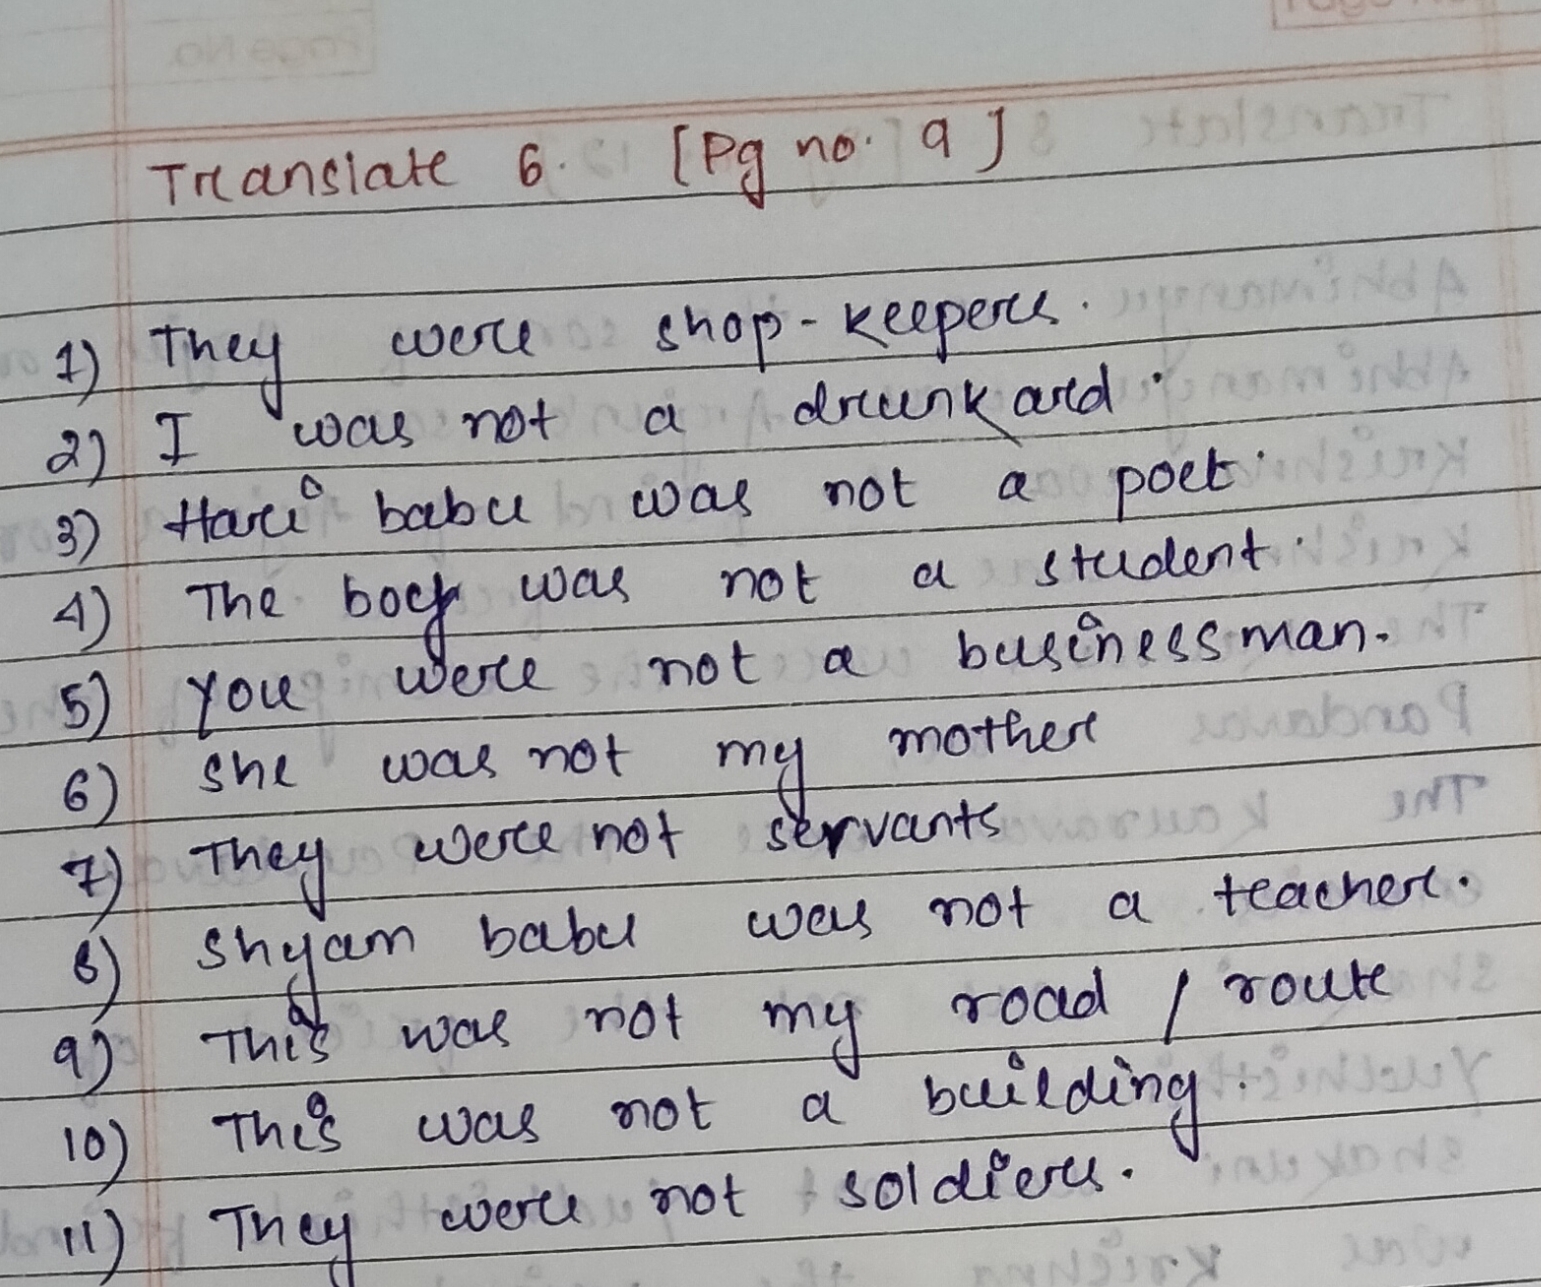 Translate 6. [Pg no. 9]
1) They were shop-keepers.
2) I was not a drunkard.
3) Hari babu was not a poet.
4) The boy was not a student.
5) You were not a businessman.
6) She was not my mother
7) They were not servants
8) Shyam babu was not a teacher.
9) This was not my road / route
10) This was not a building.
11) They were not soldiers.